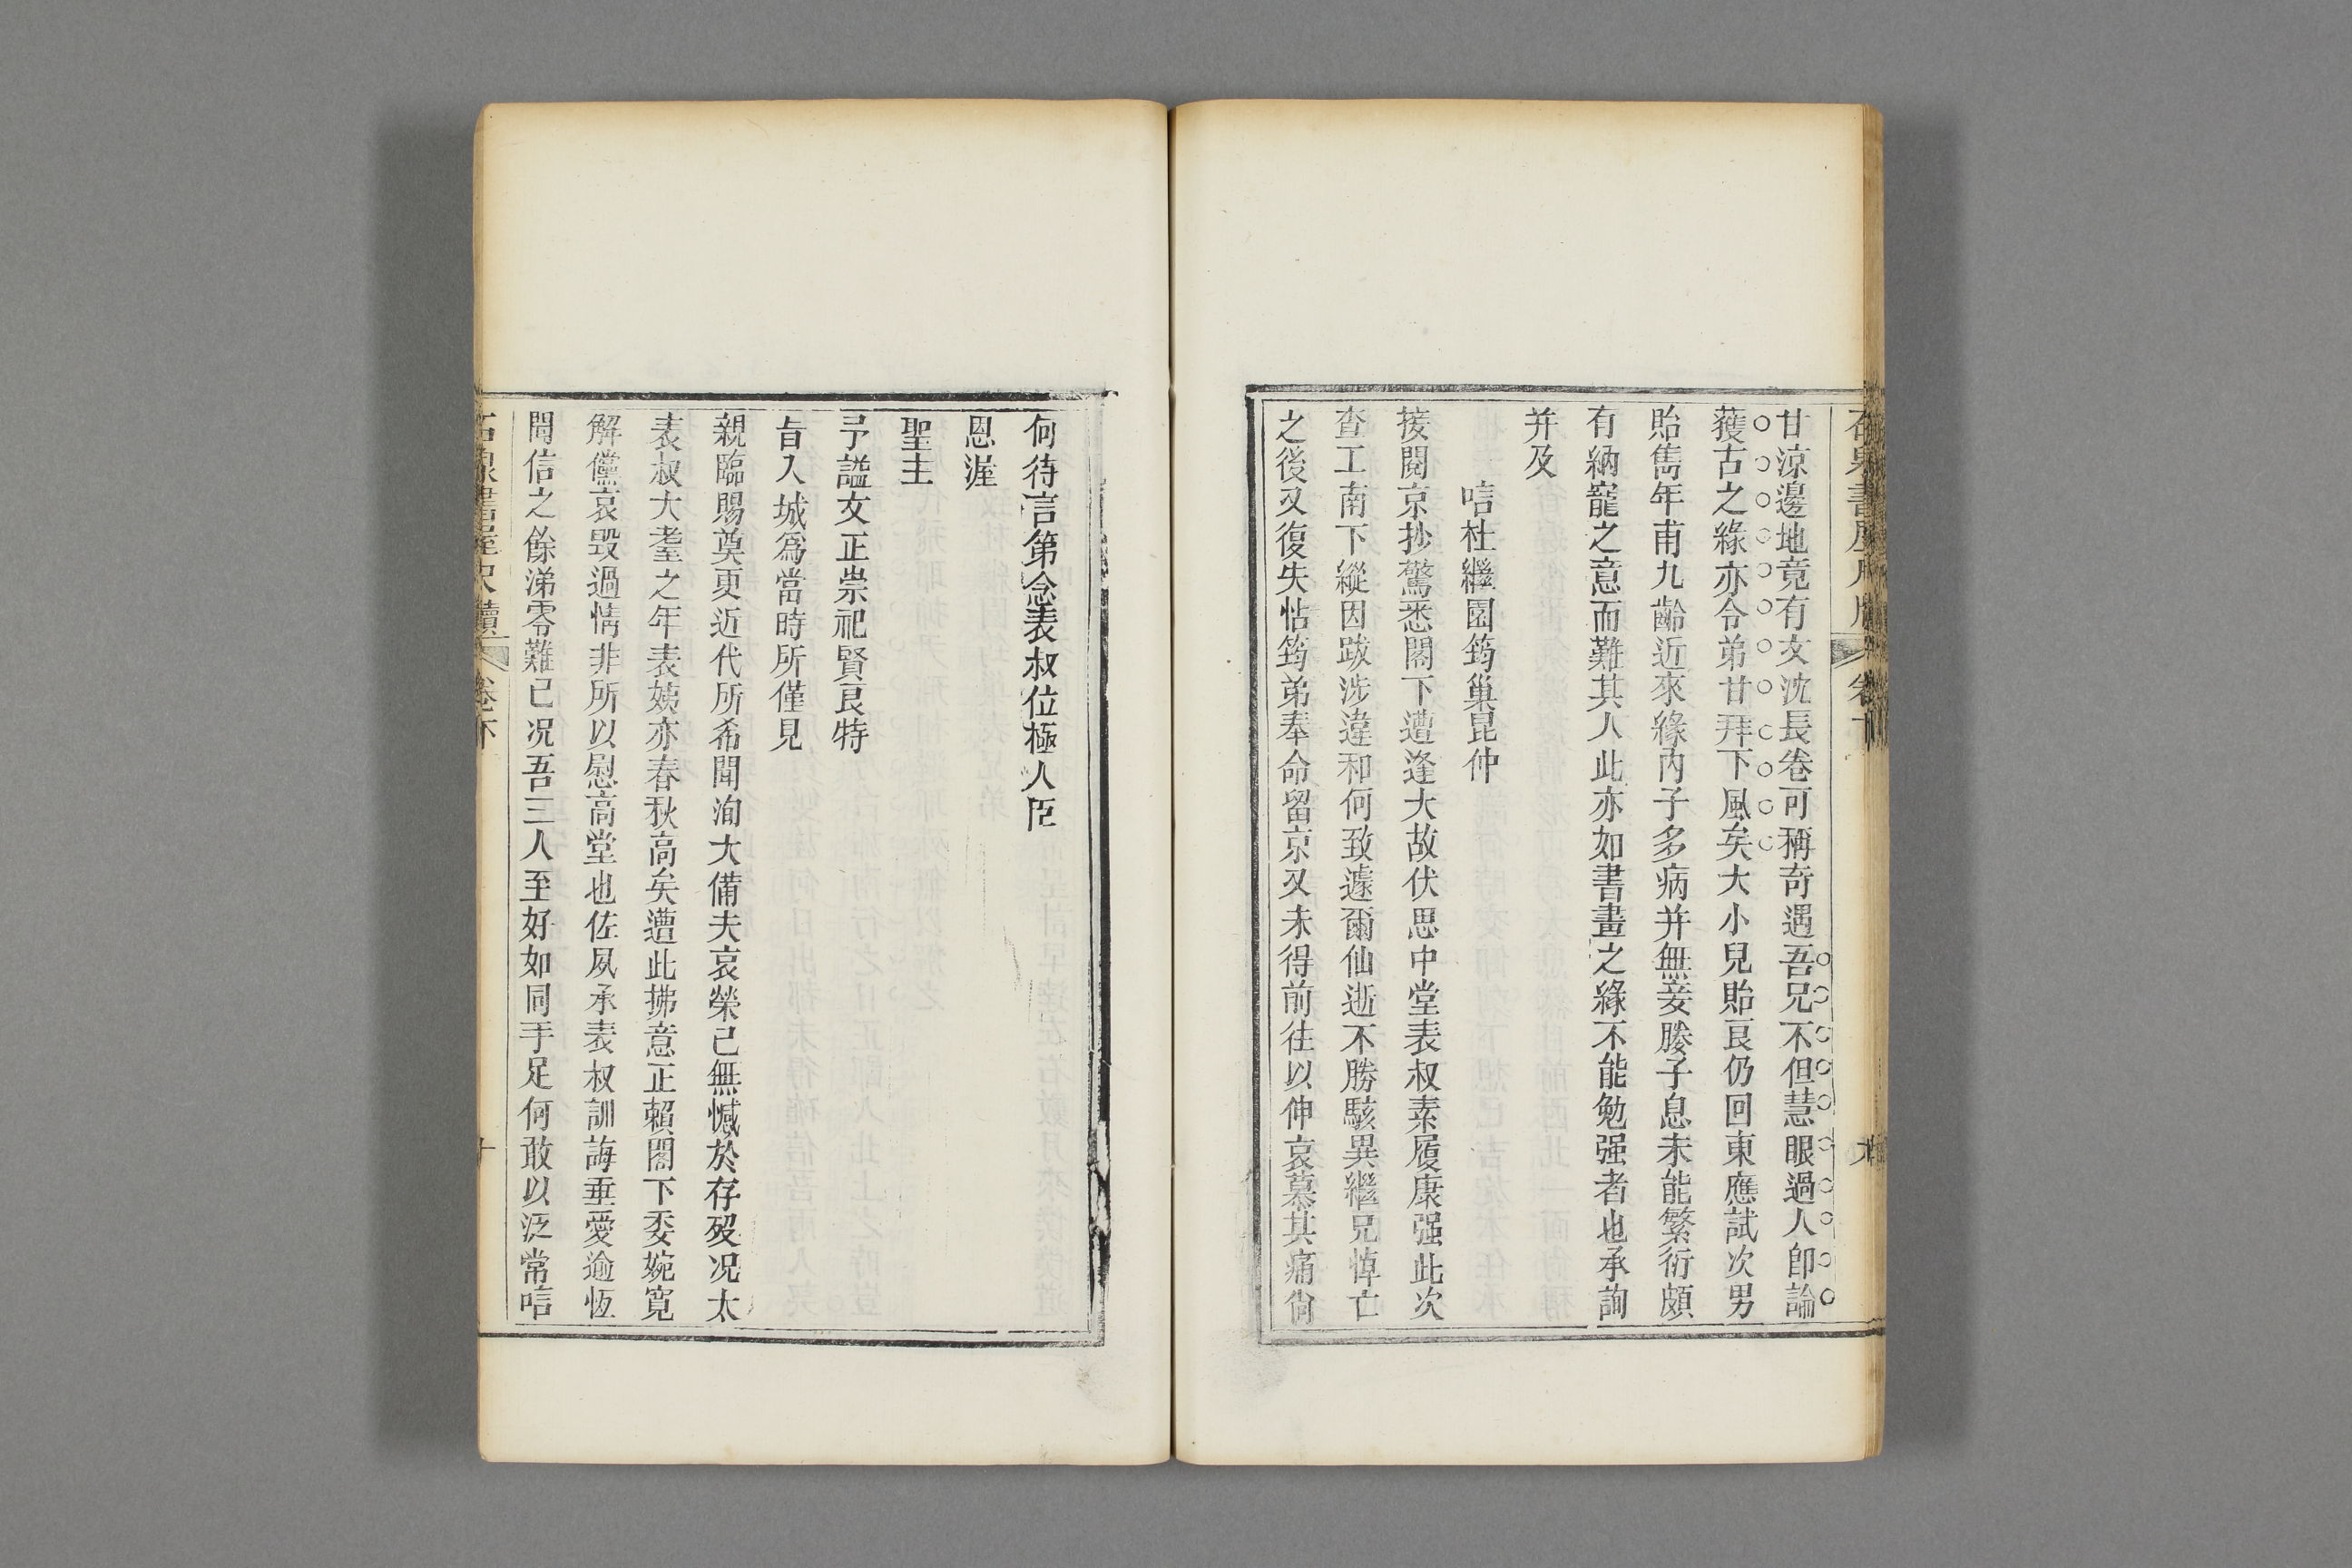 甘涼邊地竟有文沈長卷可稱奇遇吾兄不但慧眼過人卽論
獲古之緣亦令弟甘拜下風矣大小兒貽良仍回東應試次男
貽雋年甫九齡近來緣內子多病并無妾媵子息未能繁衍頗
有納寵之意而難其人此亦如書畫之緣不能勉强者也承詢
并及
唁杜繼園筠巢昆仲
接閱京抄驚悉閣下遭逢大故伏思中堂表叔素履康强此次
查工南下縱因跋涉違和何致遽爾仙逝不勝駭異繼兄悼亡
之後又復失怙筠弟奉命留京又未得前往以伸哀慕其痛尙
何待言第念表叔位極人臣
恩渥
聖主
予謚文正崇祀賢良特
旨入城爲當時所僅見
親臨賜奠更近代所希聞洵大備夫哀榮已無憾於存歿况太
表叔大耋之年表姨亦春秋高矣遭此拂意正賴閣下委婉寬
解儻哀毀過情非所以慰高堂也佐夙承表叔訓誨垂愛逾恆
聞信之餘涕零難已况吾三人至好如同手足何敢以泛常唁
石泉書屋尺牘 卷下 十